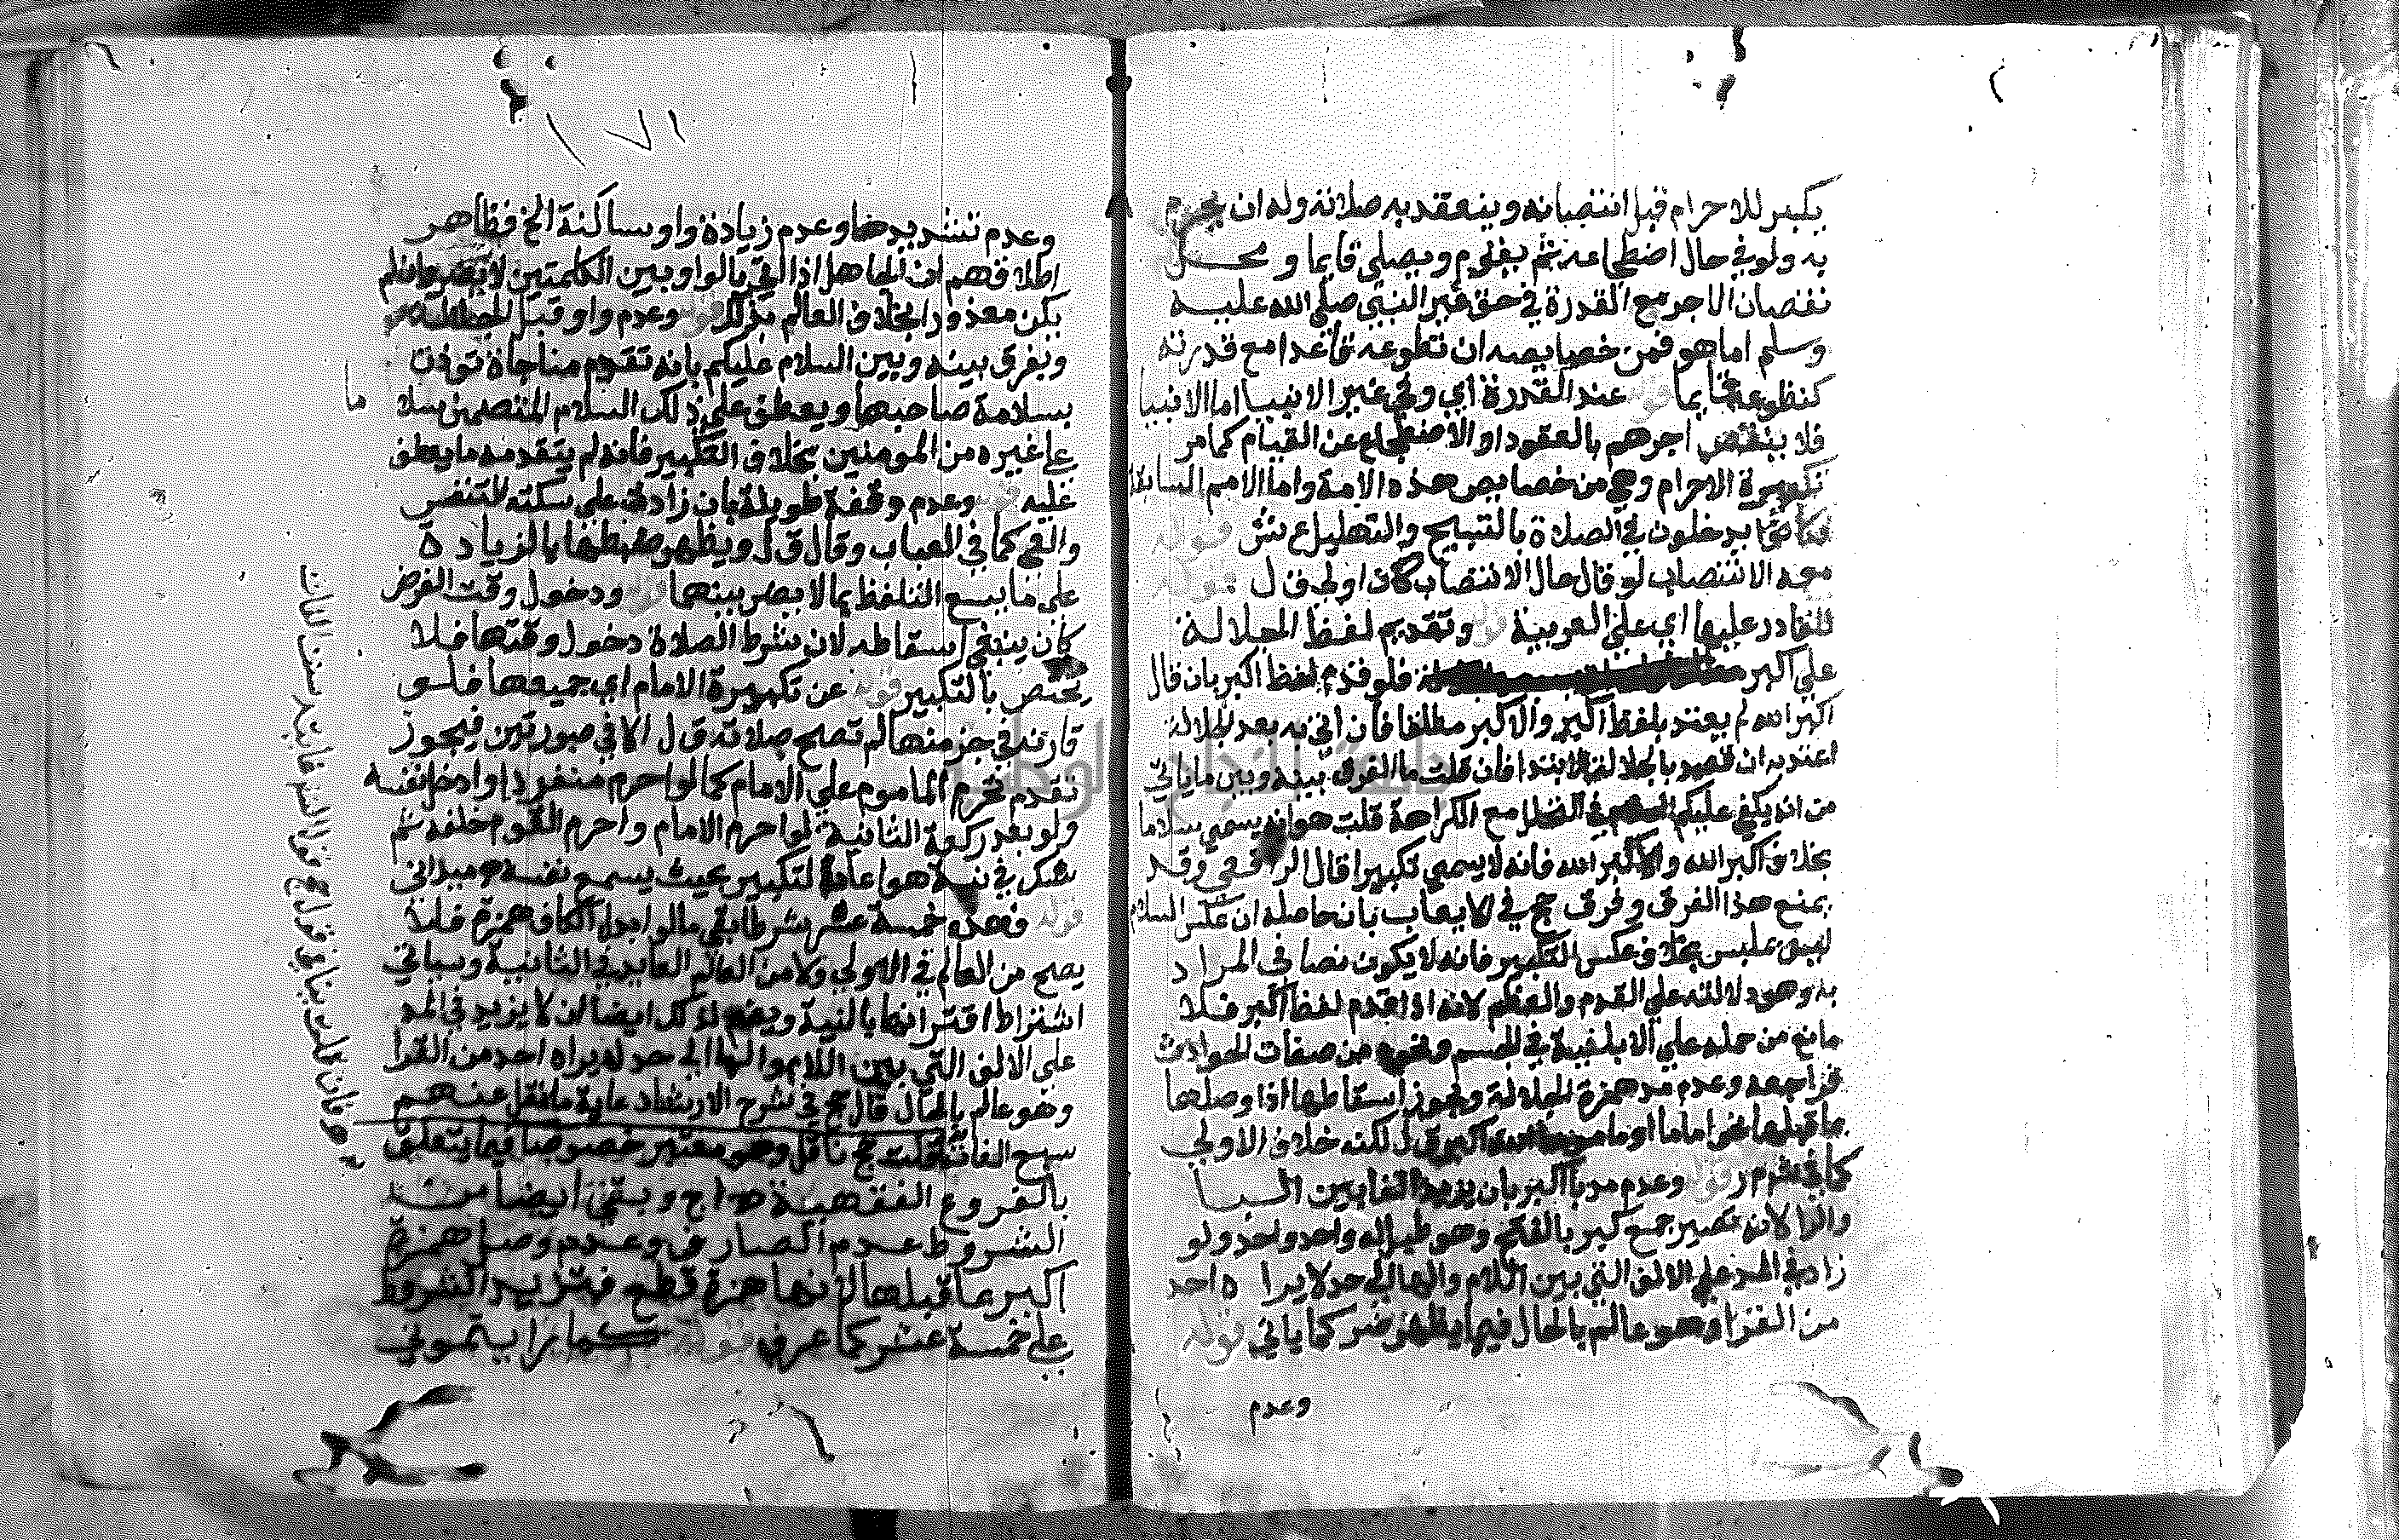 يكبر للاحرام قبل انتصابه وينعقد به صلاته وله ان يحرم
به ولو في حال اضطجاعه ثم يقوم ويصلي قايما و محـــل
نقصان الاجر مع القدرة في حق غير النبي صلى الله عليـه
وسلم اما هو فمن خصايصه ان تطوعه قاعدا مع قدرته
كتطوعه قايما قوله عند القدرة اي وفي غير الانبيا اما الانبيا
فلا ينقص اجرهم بالعقود او الاضطجاع عن القيام كما مر
تكبيرة الاحرام وهي من خصايص هذه الامة واما الامم السابقة
فكانوا يدخلون في الصلاة بالتسبيح والتهليل ع ش قوله
معه الانتصاب لو قال حال الانتصاب كان اولى ق ل قوله
للقادر عليها اي على العربية قوله وتقديم لفظ الجلالـة
على اكبر فلو قدم لفظ اكبر بان قال
اكبر الله لم يعتد بلفظ اكبر والاكبر مطلقا فان اتى به بعد الجلالة
اعتد به ان قصد بالجلالة الابتدا فان قلت ما الفرق بينه وبين ما ياتي
من انه يكفي عليكم السلام في التحلل مع الكراهة قلت هو انه يسمى سلاما
بخلاف اكبر الله والاكبر الله فانه لا يسمى تكبيرا قال الرافعي وقـد
يمنع هذا الفرق وفرق حج في الايعاب بان حاصله ان عكس السلام
ليس بملبس بخلاف عكس التكبير فانه لا يكون نصا في المراد
به وهو دلالته على القدم والعظم لانه اذا قدم لفظ اكبر فـلا
مانع من حمله على الابلغية في الجسم ونحوه من صفات الحوادث
فراجعه وعدم مد همزة الجلالة ويجوز اسقاطها اذا وصلها
بما قبلها نحو اماما او ماموما الله اكبر ق ل لكنه خلاف الاولى
كما في شرح م ر قوله وعدم مد با اكبر بان يزيد الفا بين البـــا
والرا لانه يصير جمع كبر بالفتح وهو طبل له وجه واحد ولو
زاد في المد على الالف التي بين اللام والها الى حد لا يراه احد
من القرا وهو عالم بالحال فيما يظهر ضر كما ياتي قوله
وعدم
١٧١
وعدم تشديدها وعدم زيادة واو ساكنة الخ فظاهر
اطلاقهم ان الجاهل اذا اتى بالواو بين الكلمتين لا يضر وان لم
يكن معذورا بخلاف العالم بذلك قوله وعدم واو قبل الجلالة
ويفرق بينه وبين السلام عليكم بانه تقدم مناجاة توذن
بسلامة صاحبها ويعطف على ذلك السلام المتضمن سلاما
على غيره من المومنين بخلاف التكبير فانه لم يتقدمه ما يعطف
عليه قوله وعدم وقفة طويلة بان زادت على سكتة التنفس
والعي كما في العباب وقال ق ل ويظهر ضبطها بالزيادة
على ما يسع التلفظ بما لا يضر بينهما قوله ودخول وقت الفرض
كان ينبغي اسقاطه لان شرط الصلاة دخول وقتها فـلا
يختص بالتكبير قوله عن تكبيرة الامام اي جميعها فلـو
قارنه في جز منها لم تصح صلاته ق ل الا في صورتين فيجوز
تقدم تحرم الماموم على الامام كما لو احرم منفردا وادخل نفسه
ولو بعد ركعة الثانية لو احرم الامام واحرم القوم خلفه ثم
شك في نيته هو اعاد التكبير بحيث يسمع نفسه ميداني
قوله فهذه خمسة عشر شرطا بقي ما لو ابدل الكاف همزة فـلا
يصح من العالم في الاولى ولا من العالم العايد في الثانية وسياتي
اشتراط اقترانها بالنية ويضم لذلك ايضا ان لا يزيد في المد
على الالف التي بين اللام والها الى حد لا يراه احد من القرا
وهو عالم بالحال قال حج في شرح الارشاد غاية ما نقل عنهـم
سبع الفات قلت حج ناقل وهو معتبر خصوصا فيما يتعلق
بالفروع الفقهية اج وبقي ايضا من
الشروط عدم الصارف وعدم وصل همزة
اكبر بما قبلها لانها همزة قطع فتزيد الشروط
على خمسة عشر كما عرف قوله كما رايتموني